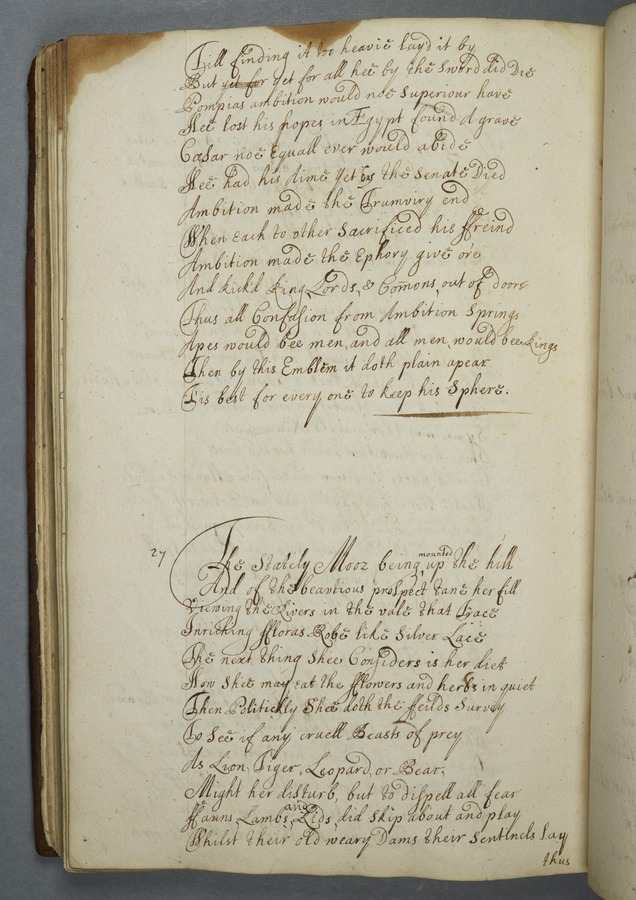 Till finding it too heavie layd it by
But yet for yet for all hee by the Sword did Die
Pompias ambition would noe Superiour have
Hee lost his hopes in Ægypt found A grave
Cæsar noe Equall ever would abide
Hee had his time yet by the Senate Died
Ambition made the Trumviry end
When each to other Sacrificed his ffreind
Ambition made the Ephory give ore
And kickd King Lords, & Comons, out of doors
Thus all Confusion from Ambition Springs
Apes would bee men, and all men would bee Kings
Then by this Emblem it doth plain apear
Tis best for every one to keep his Sphere.
27
The Stately Mooz being mounted up the hill
And of the beautious prospect tane her fill
Viewing the Rivers in the vale that Trace
Inriching ffloras Robe like Silver Lace
The next thing Shee Considers is her diet
How Shee may eat the fflowers and herbs in quiet
Then Politickly Shee doth the ffeilds Survey
To See if any cruell Beasts of prey
As Lion, Tiger, Leopard, or Bear,
Might her disturb, but to dispell all fear
ffawns Lambs and Kids, did Skip about and play
Whilst their old weary Dams their Sentinels lay
thus